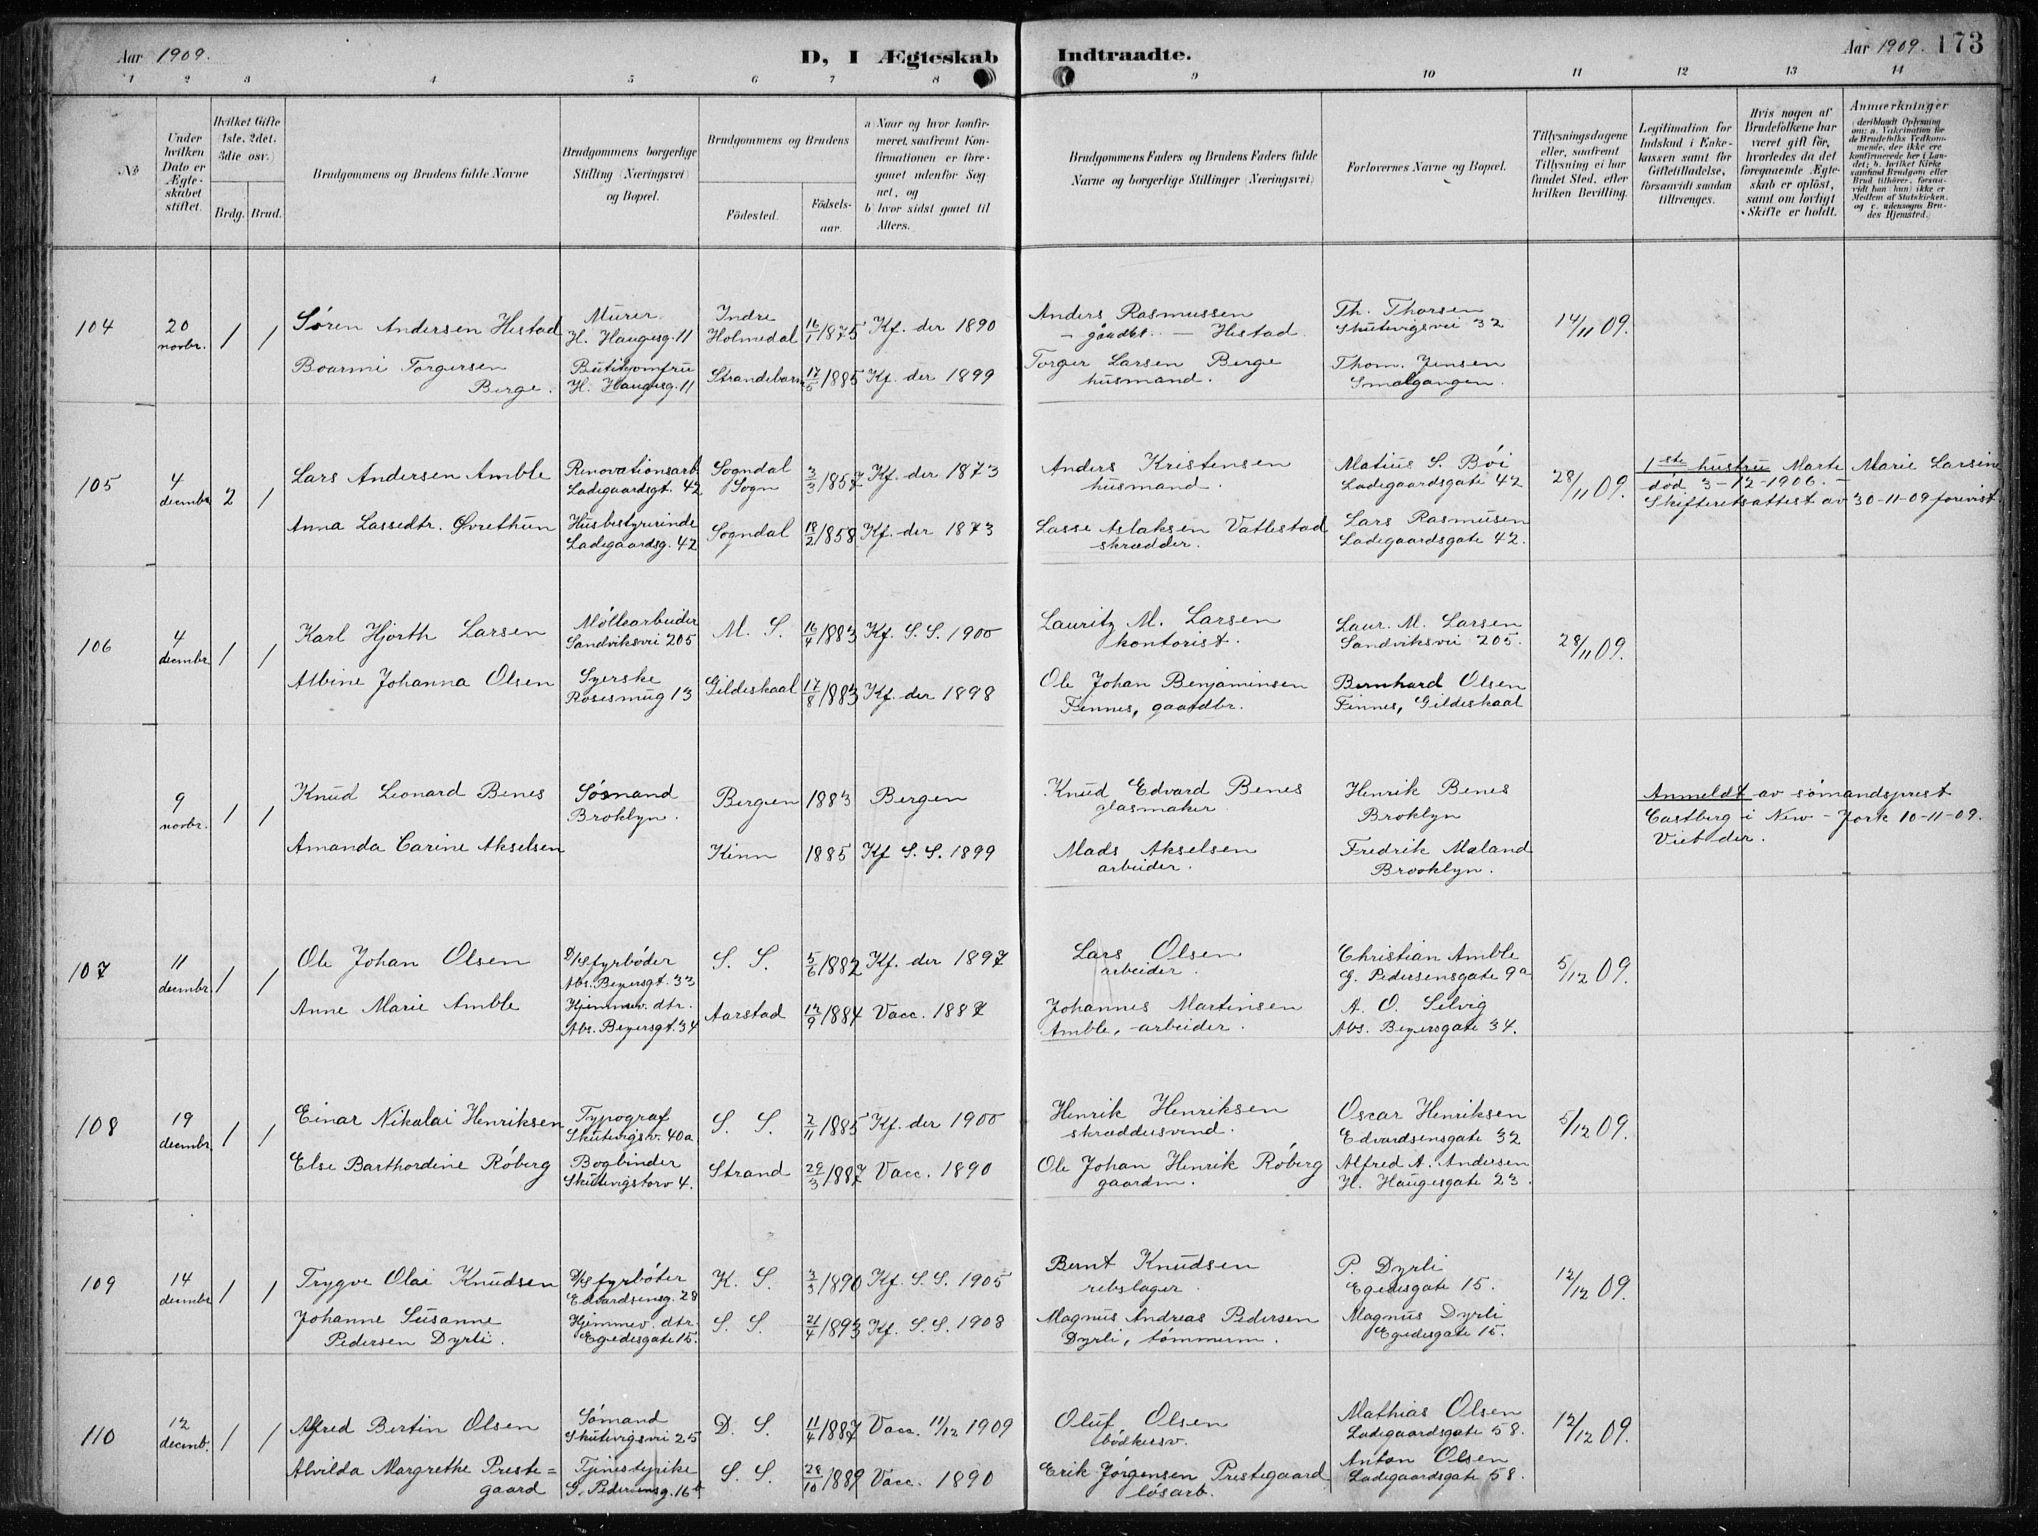 Aar 1909.
D, I Ægteskab
Indtraadte.
Aar 1909. 173
1 2 3 4 5 6 7 8 9 10 11 12 13 14
No
Under hvilken Dato er Ægteskabet stiftet.
Hvilket Gifte (1ste, 2det, 3die osv.)
Brdg. Brud.
Brudgommens og Brudens fulde Navne
Brudgommens borgerlige Stilling (Næringsvei) og Bopæl.
Brudgommens og Brudens
Fødested. Fødselsaar.
a) Naar og hvor konfirmeret, saafremt Konfirmationen er foregaaet udenfor Sognet, og
b) hvor sidst gaaet til Alters.
Brudgommens Faders og Brudens Faders fulde Navne og borgerlige Stillinger (Næringsvei)
Forlovernes Navne og Bopæl.
Tillysningsdagene eller, saafremt Tillysning ei har fundet Sted, efter hvilken Bevilling.
Legitimation for Indskud i Enkekassen samt for Giftetilladelse, forsaavidt saadan tiltrænges.
Hvis nogen af Brudefolkene har været gift før, hvorledes da det foregaaende Ægteskab er opløst, samt om lovligt Skifte er holdt.
Anmerkninger (deriblandt Oplysning om: a. Vakcination for de Brudefolks Vedkommende, der ikke ere konfirmerede her i Landet; b. hvilket Kirkesamfund Brudgom eller Brud tilhører, forsaavidt han (hun) ikke er Medlem af Statskirken, og c. udensogns Brudes Hjemsted.)
104
20 novbr.
1 1
Søren Andersen Hestad
Murer. H. Haugesg. 11
Indre Holmedal
16/1 1875
Kf. der 1890
Anders Rasmussen
- gaadbr. - Hestad.
Th. Thorsen
Skutevigsvei 32
14/11 09.
Torgersen
Berge.
H. Haugesg. 11
Strandebarm
17/5 1885
Kf. der 1899
Torger Larsen Berge
husmand.
Thom. Jensen
Smalgangen.
105
4 decembr
2 1
Lars Andersen Amble
Renovationsarb.
Ladegaardsgt. 42
Sogndal
Sogn
3/3 1857
Kf. der 1873
Anders Kristensen
husmand.
Matius S. Bøi
Ladegaardsgate 42
28/11 09.
1ste hustru Marte Marie Larsine
død 3-12-1906. -
Skifteretsattest av 30-11-09 forevist.
Anna Lassedtr. Øvrethun
Husbestyrerinde
Ladegaardsg. 42
Sogndal
18/2 1858
Kf. der 1873
Lasse Aslaksen Vatlestad
skrædder.
Lars Rasmusen
Ladegaardsgate 42.
106
4 decembr
1 1
Karl Hjorth Larsen
Møllearbeider
Sandviksvei 205
M. S.
16/4 1883
Kf. S. S. 1900
Lauritz M. Larsen
kontorist.
Laur. M. Larsen
Sandviksvei 205.
28/11 09.
Albine Johanna Olsen
Syerske
Rosesmug 13
Gildeskaal
17/8 1883
Kf. der 1898
Ole Johan Benjaminsen
Finnes, gaardbr.
Bernhard Olsen
Finnes, Gildeskaal
9 novbr.
1 1
Knud Leonard Benes
Sømand
Broklyn.
Bergen
1883
Bergen
Knud Edvard Benes
glasmaker
Henrik Benes
Broklyn
Anmeldt av sømandsprest
Castberg i New-York 10-11-09.
Viet der.
Amanda Carine Akselsen
Kinn
1885
Kf S. S. 1899
Mads Akselsen
arbeider.
Fredrik Mæland
Brooklyn.
107
11 decembr.
1 1
Ole Johan Olsen
D/S fyrbøder
Abs. Beyersgt. 33
S. S.
5/6 1882
Kf. der 1897
Lars Olsen
arbeider.
Christian Amble
G. Pedersensgate 9a
5/12 09.
Anne Marie Amble
Hjemmev. dtr.
Abs. Beyersgt. 34
Aarstad
12/9 1884
Vacc. 1887
Johannes Martinsen
Amble, arbeider.
A. O. Selvig
Abs. Beyersgate 34.
108
19 decembr.
1 1
Einar Nikolai Henriksen
Typograf
Skutevigsv. 40a
S. S.
2/11 1885
Kf. der 1900
Henrik Henriksen
skræddersvend.
Oscar Henriksen
Edvardsensgate 32
5/12 09.
Else Barthordine Røberg
Bogbinder
Skutevigstorv 4.
Strand
29/3 1887
Vacc. 1890
Ole Johan Henrik Røberg
gaardm.
Alfred A. Andersen
H. Haugesgate 23.
109
14 decembr
1 1
Trygve Olai Knudsen
D/S fyrbøter
Edvardsensg. 28
K. S.
3/3 1890
Kf. S. S. 1905
Bernt Knudsen
rebslager.
P. Dyrli
Egedesgate 15.
12/12 09.
Johanne Susanne
Pedersen Dyrli.
Hjemmev. dtr.
Egedesgate 15.
S. S.
21/4 1893
Kf. S. S. 1908
Magnus Andreas Pedersen
Dyrli, tømmerm.
Magnus Dyrli
Egedesgate 15.
110
12 decemb.
1 1
Alfred Bertin Olsen
Sømand
Skutevigsvei 25
D. S.
11/4 1887
Vacc. 11/12 1909
Oluf Olsen
bødkersv.
Mathias Olsen
Ladegaardsgate 58.
12/12 09.
Alvilda Margrethe Preste=
gaard
Tjenestepike
G. Pedersensg. 16b
S. S.
28/10 1889
Vacc. 1890
Erik Jørgensen Prestegaard
løsarb.
Anton Olsen
Ladegaardsgate 58.